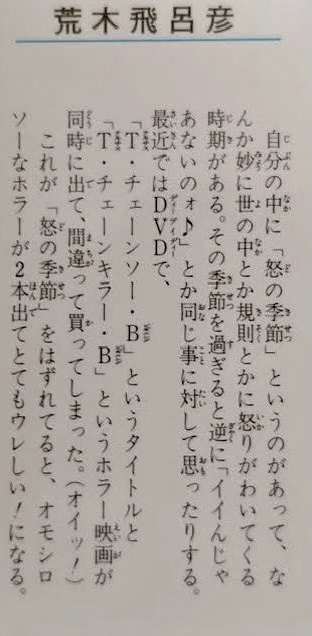 荒木飛呂彦
自分の中に「怒の季節」というのがあって、な
んか妙に世の中とか規則とかに怒りがわいてくる
時期がある。その季節を過ぎると逆に「イイんじゃ
あないのォ♪」とか同じ事に対して思ったりする。
最近ではDVDで、
「T・チェーンソー・B」というタイトルと
「T・チェーンキラー・B」というホラー映画が
同時に出て、間違って買ってしまった。(オイッ！)
これが「怒の季節」をはずれてると、オモシロ
ソーなホラーが2本出てとてもウレしい！になる。